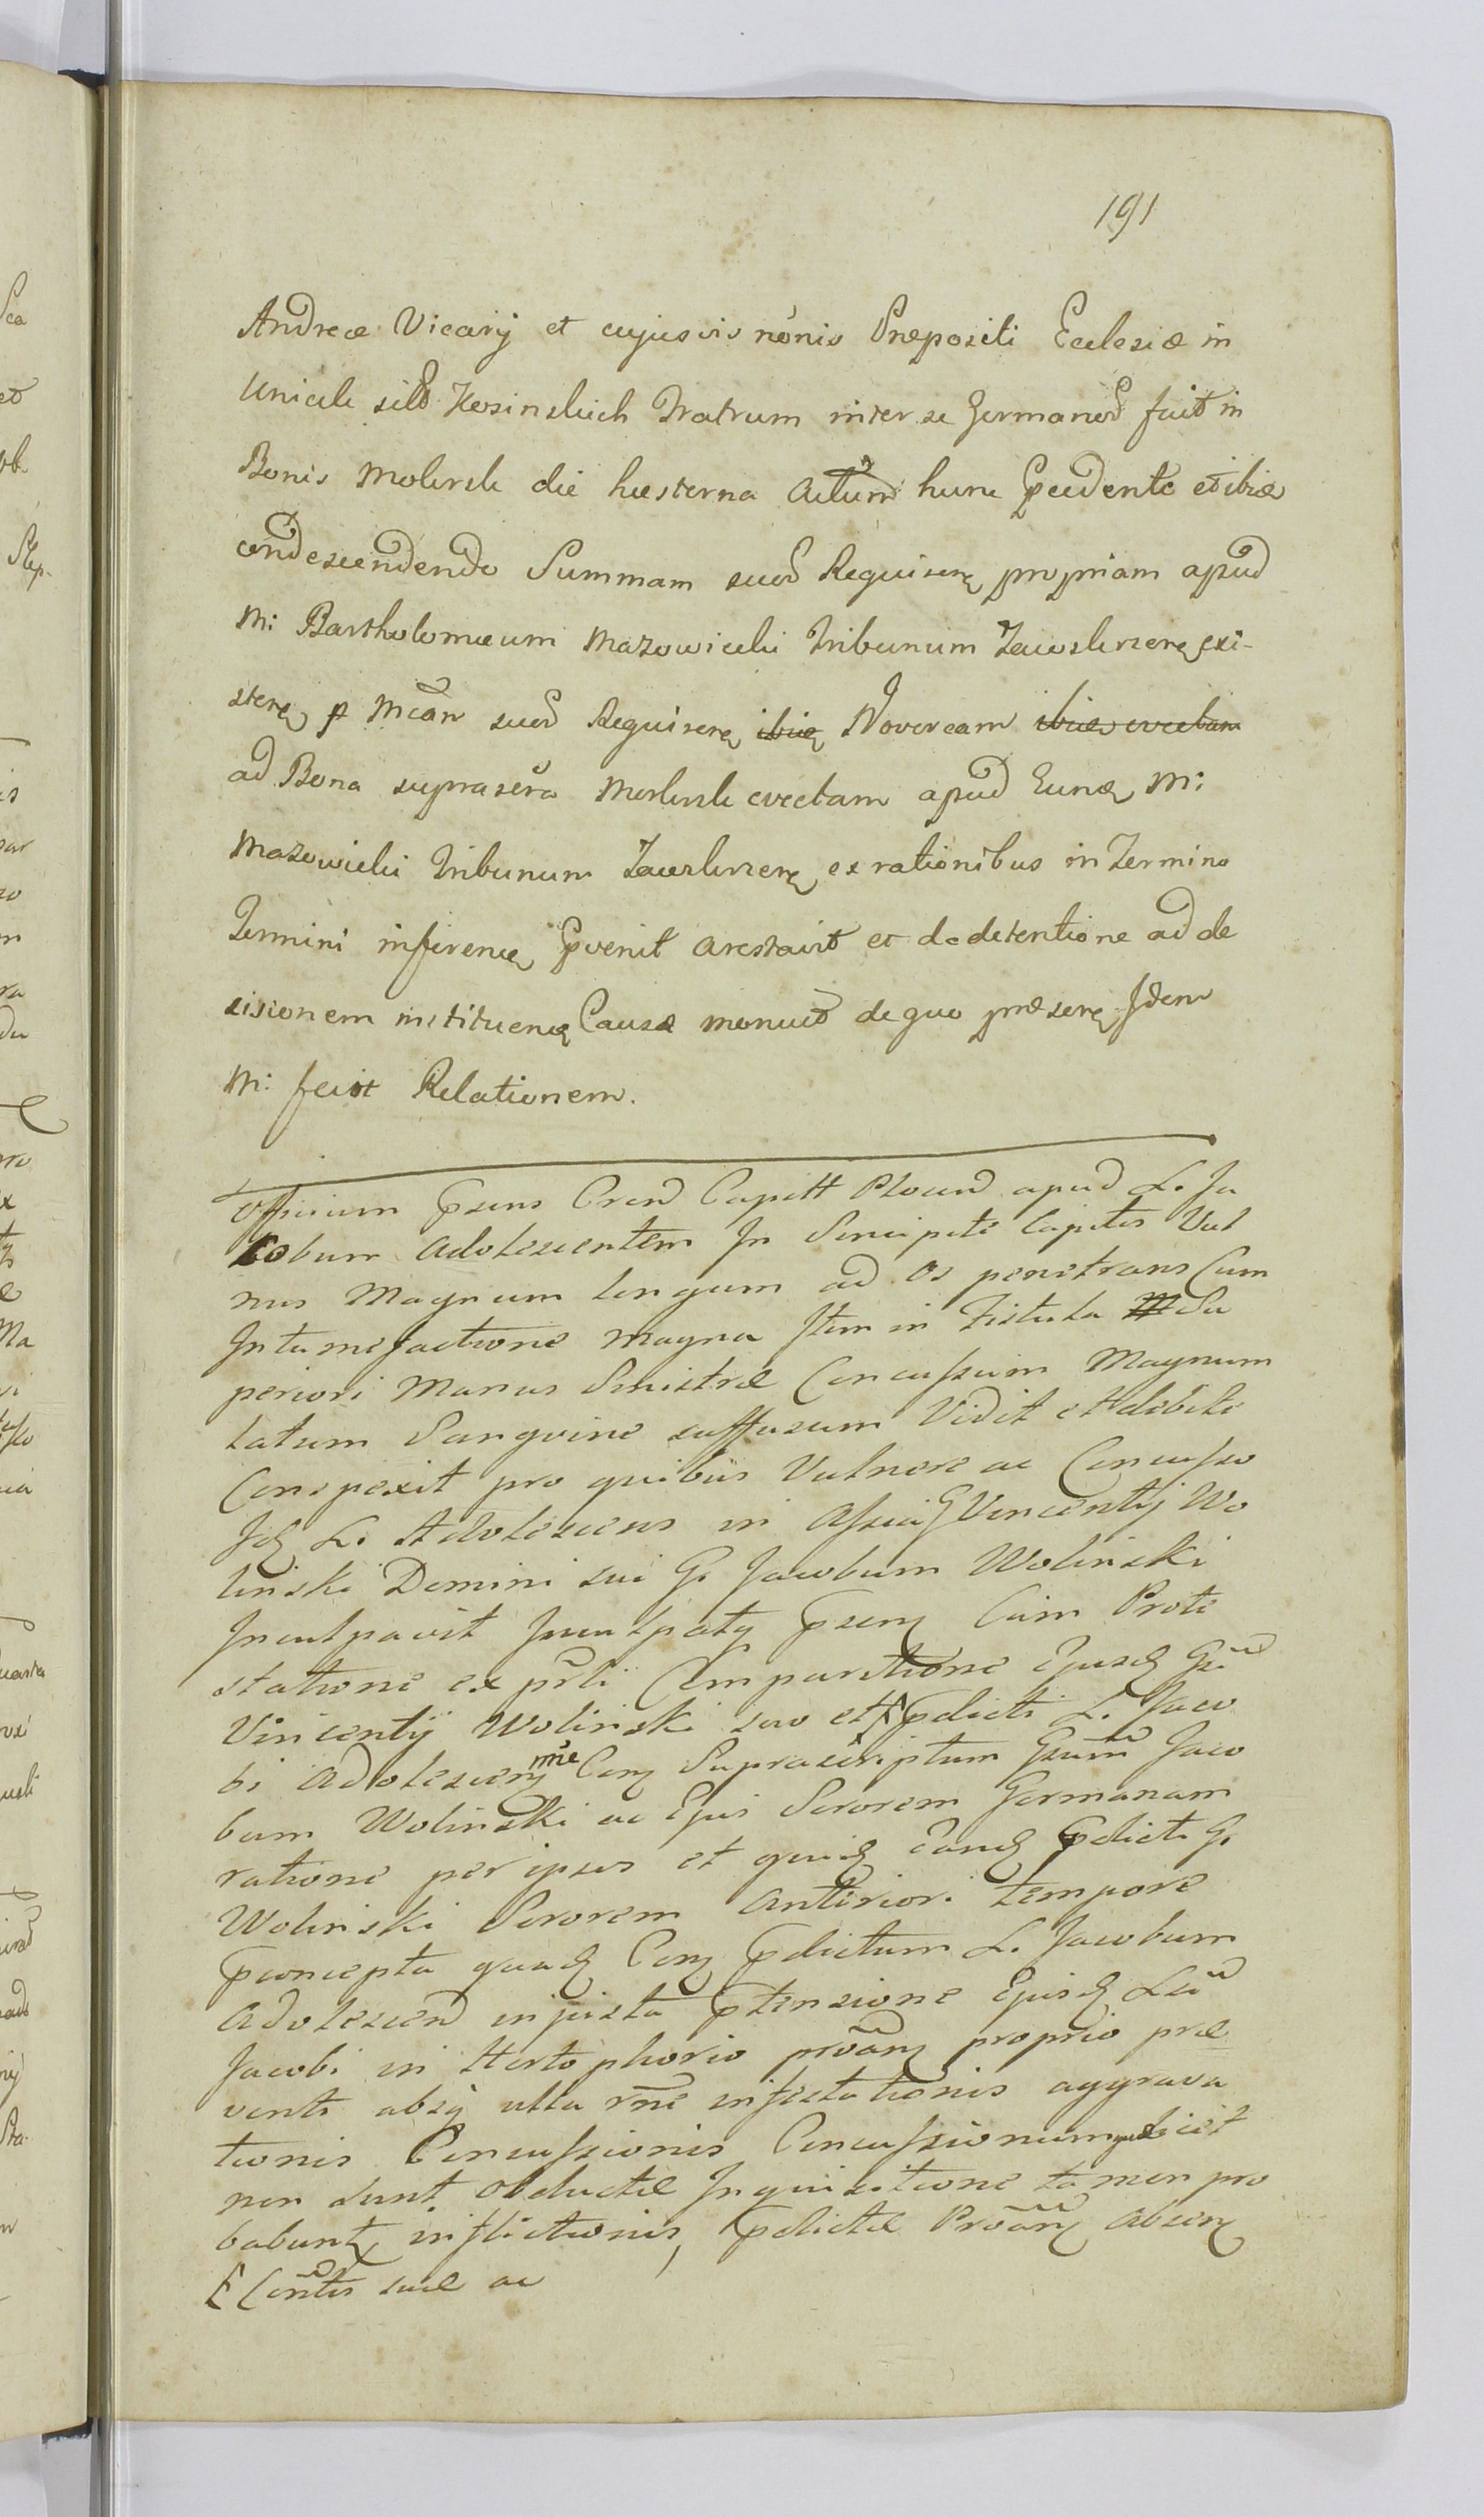 191
Andreæ Vicarij et cujusvis nõnis Præpositi Ecclesiæ in
Unieck Kosinskich Fratrum inter se Germanor fuit in
Bonis Molersk die hesterna Actum hunc Pcedente et ibiq
condescendendo Summam suor Requiren propriam apud
M: Bartholomæum Mazowiecki Tribunum Zawskrzen exi-
sten p suor Requiren ibiq Novercam ibiq evectam
ad Bona suprascra evectam apud Eund M:
Mazowiecki Tribunum Zawskrzen ex rationibus in Termino
Termini inferend Pvenit arestavit et de detentione ad de
cisionem instituend Causæ monuit de quo præsen Idem
M: fecit Relationem.
Officium Psens Capitt Plocen apud L. Ja
cobum Adolescentem In Sincipite Capitis Vul
nus Magnum longum ad Os penetrans Cum
Intumefactione magna Item in Fistula Su
periori Manus Sinistræ Concussum Magnum
latum Sangvine suffusum Vidit et debite
Conspexit pro quibus Vulnere ac Concusso
Id L. Adolescens in Vincentij Wo
linski Domini sui G. Jacobum Wolinski
Inculpavit Inculpatq Psen Cum Prote
statione ex prlī Comparitione Ejusd
Vincentij Wolinski suo et Pdicti L. Jaco
bi Adolescen nñe Con Suprascriptum Jaco
bum Wolinski ac Ejus Sororem Germanam
ratione per ipsos et quid eand Pdicti G.
Wolinski Sororem Anteriori tempore
Pconcepta quad Con Pdictum L. Jacobum
Adolescen injusta Ptensione Ejusd
Jacobi in Hortophorio proprio præ
venti absq ulla rñe infestationis aggrava
tionis Concussionis Concussionumq licet
non sunt Obductæ Inquisitione tamen pro
babunt, inflictionis, Pdictæ Absen
suæ ac